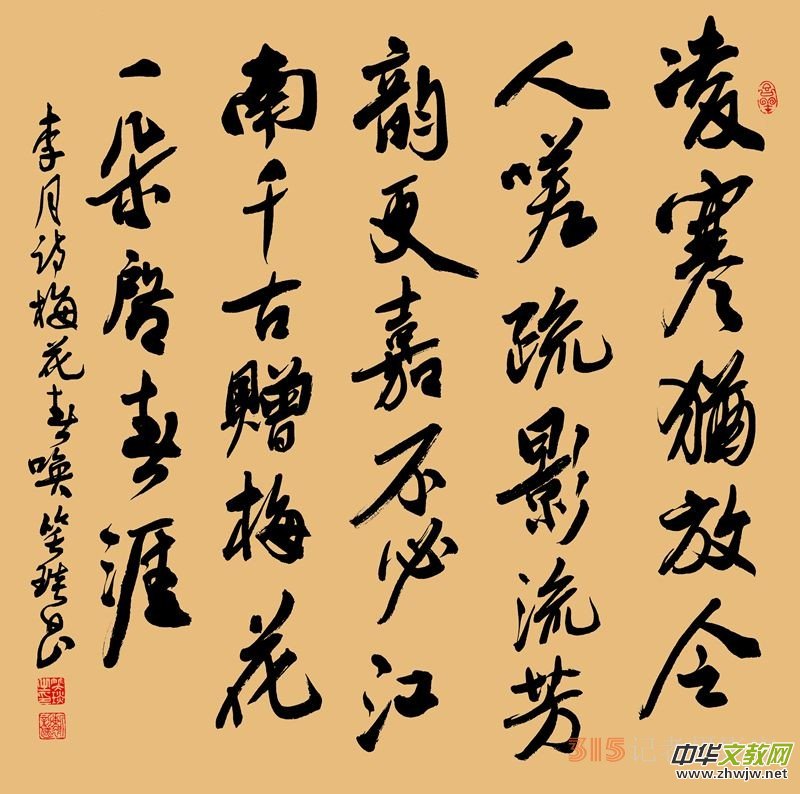 凌寒猶放令
人嗟疏影流芳
韵更嘉不必江
南千古贈梅花
一朵啓春涯
李月诗梅花春唤
315记者
中华文教网
www.zhwjw.net